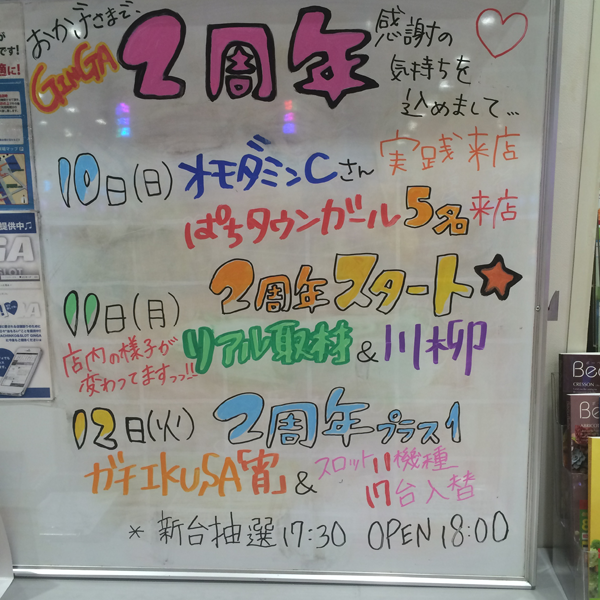 おかげさまで、
GINGA
2周年
感謝の
気持ちを
込めまして...
10日(日) オモダミンCさん 実践来店
ぱちタウンガール 5名来店
11日(月) 2周年スタート★
店内の様子が
変わってますっっ!!
リアル取材&川柳
12日(火) 2周年プラス1
ガチIKUSA「宵」&
スロット11機種
17台入替
*新台抽選17:30 OPEN18:00
提供中♪